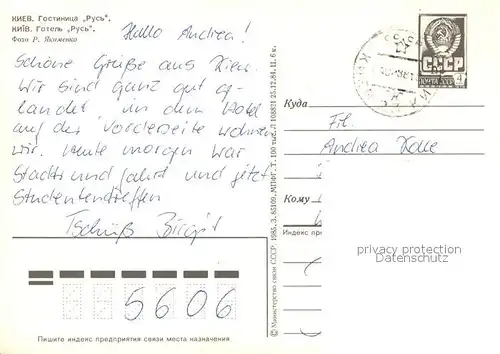 КИЕВ. Гостиница „Русь".
КИЇВ. Готель „Русь".
Фото Р. Якименко
Hallo Andrea!
Schöne Grüße aus Kiew.
Wir sind ganz gut ge-
landet in dem Hotel
auf der Vorderseite wohnen
wir. Heute morgen war
Stadtrundfahrt und jetzt
Studententreffen
Tschüß Birgit
5606
Пишите индекс предприятия связи места назначения
© Министерство связи СССР. 1985. З. 85109. МПФГ. Т. 100 тыс. Л 108831 25.12.84. 11. 6 к.
СССР
4
Куда
Frl.
Andrea
Кому
Индекс пре
privacy protection
akpool.de